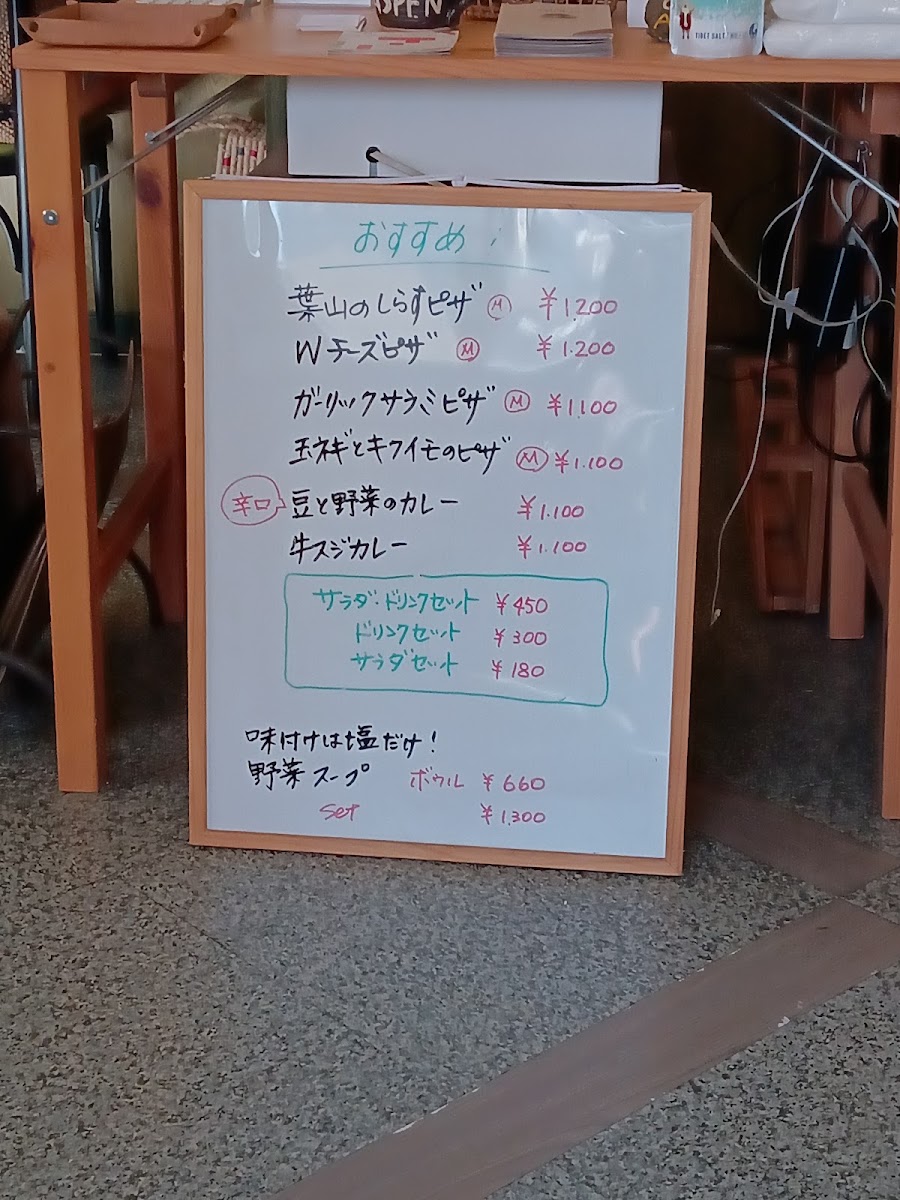 OPEN
TIBET SALT
おすすめ
葉山のしらすピザ Ⓜ ¥1.200
Wチーズピザ Ⓜ ¥1.200
ガーリックサラミピザ Ⓜ ¥1.100
玉ネギとキクイモのピザ Ⓜ ¥1.100
辛口 豆と野菜のカレー ¥1.100
牛スジカレー ¥1.100
サラダ・ドリンクセット ¥450
ドリンクセット ¥300
サラダセット ¥180
味付けは塩だけ!
野菜スープ ボウル ¥660
set ¥1.300